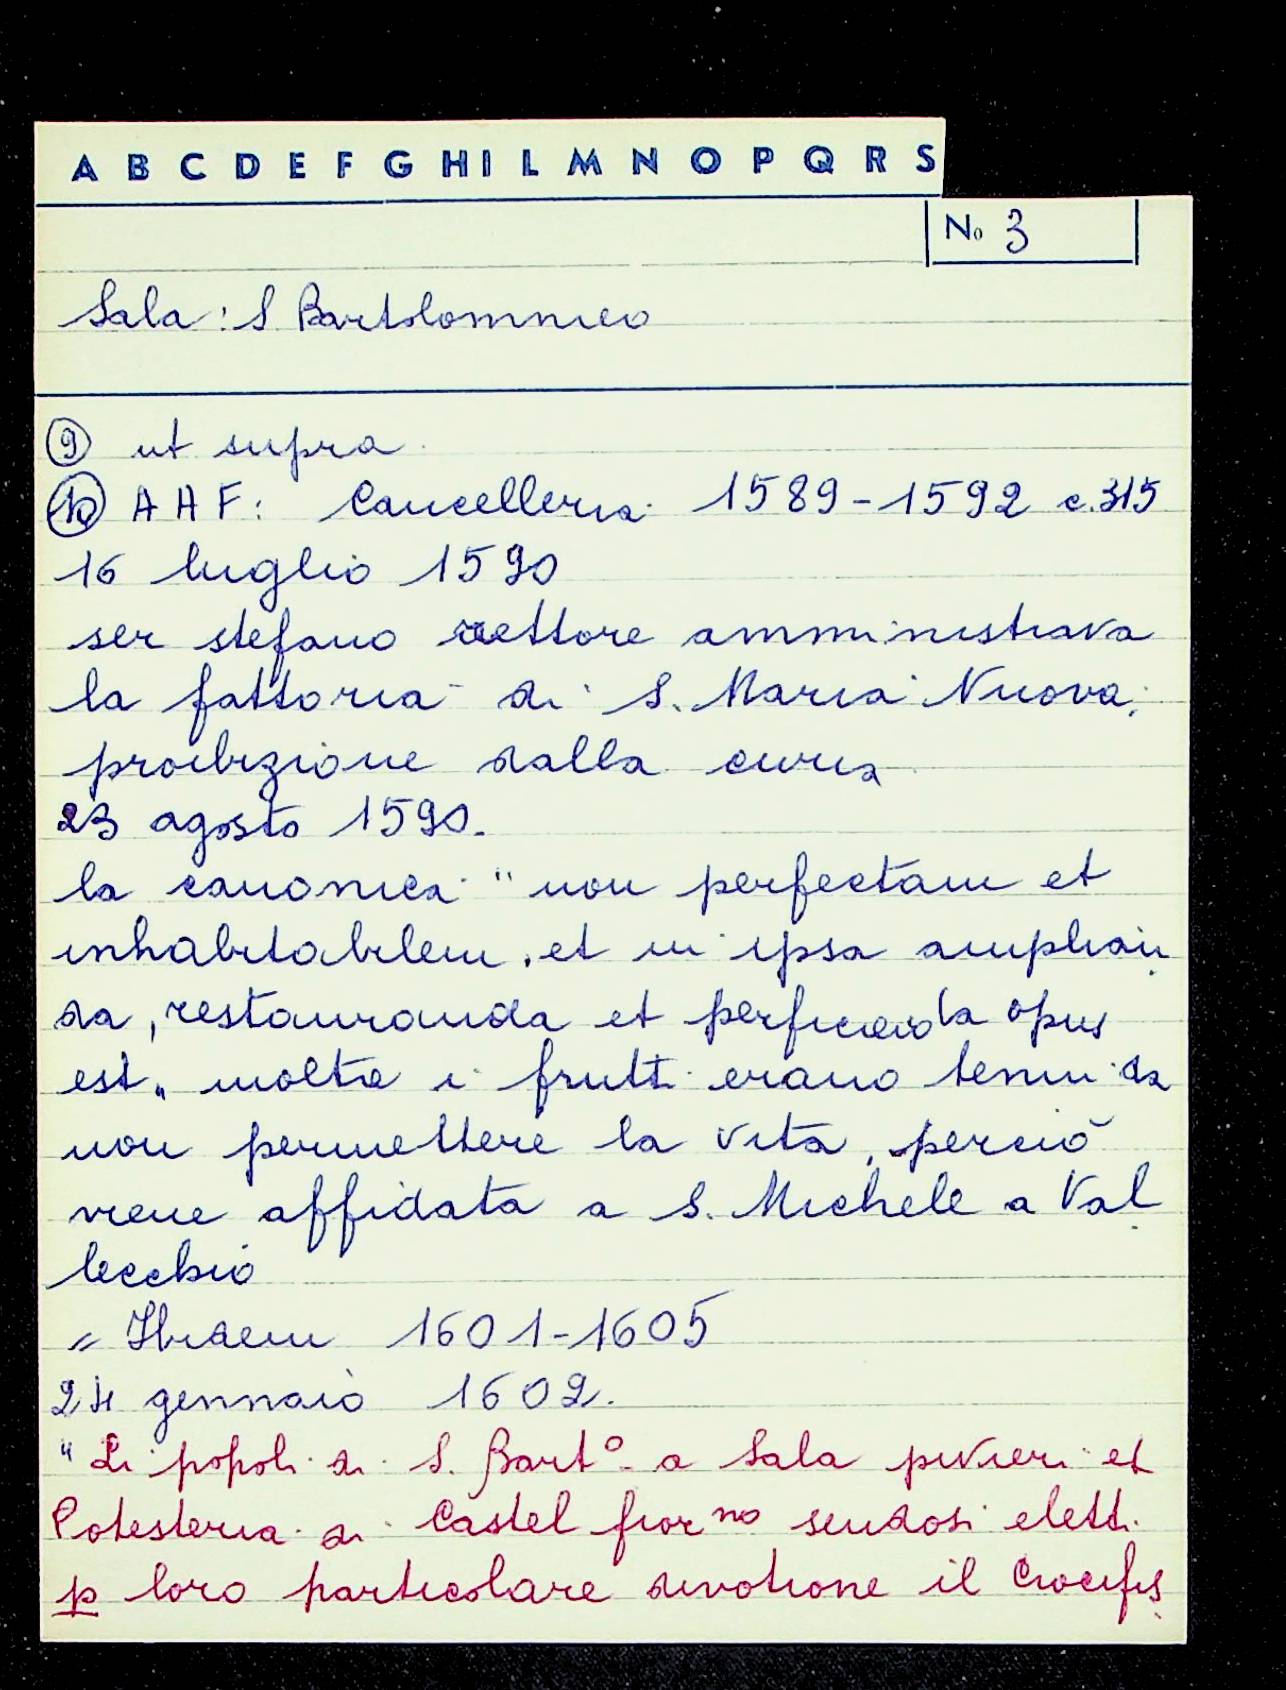 A B C D E F G H I L M N O P Q R S
No 3
Sala: S. Bartolommeo
9 ut supra
10 A A F: Cancelleria 1589-1592 c.315
16 luglio 1590
ser stefano rettore amministrava
la fattoria di S. Maria Nuova;
proibizione dalla curia
23 agosto 1590.
la canonica "non perfectam et
inhabitabilem, et in ipsa amplian
da, restauranda et perficienda opus
est" inoltre i frutti erano tenui da
non permettere la vita, perciò
viene affidata a S. Michele a Val
lecchio
" Ibidem 1601-1605
24 gennaio 1602.
"Li popoli di S. Barto a Sala pivieri et
Potesteria di Castel fiorno sendosi eletti
p loro particolare divotione il Crocifis